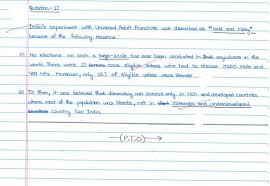 Question: 27
India's experiment with Universal Adult Franchise was described as "bold and risky"
because of the following reasons:
(i) No elections on such a large-scale has ever been conducted in anywhere in the
world. There were 17 crore eligible voters who had to choose 3200 MLAs and
489 MPs. Moreover, only 15% of eligible voters were literate.
(ii) Till then, it was believed that democracy can connect only in rich and developed countries
where most of the population was literate, not in and underdeveloped
country like India.
(P.T.O)